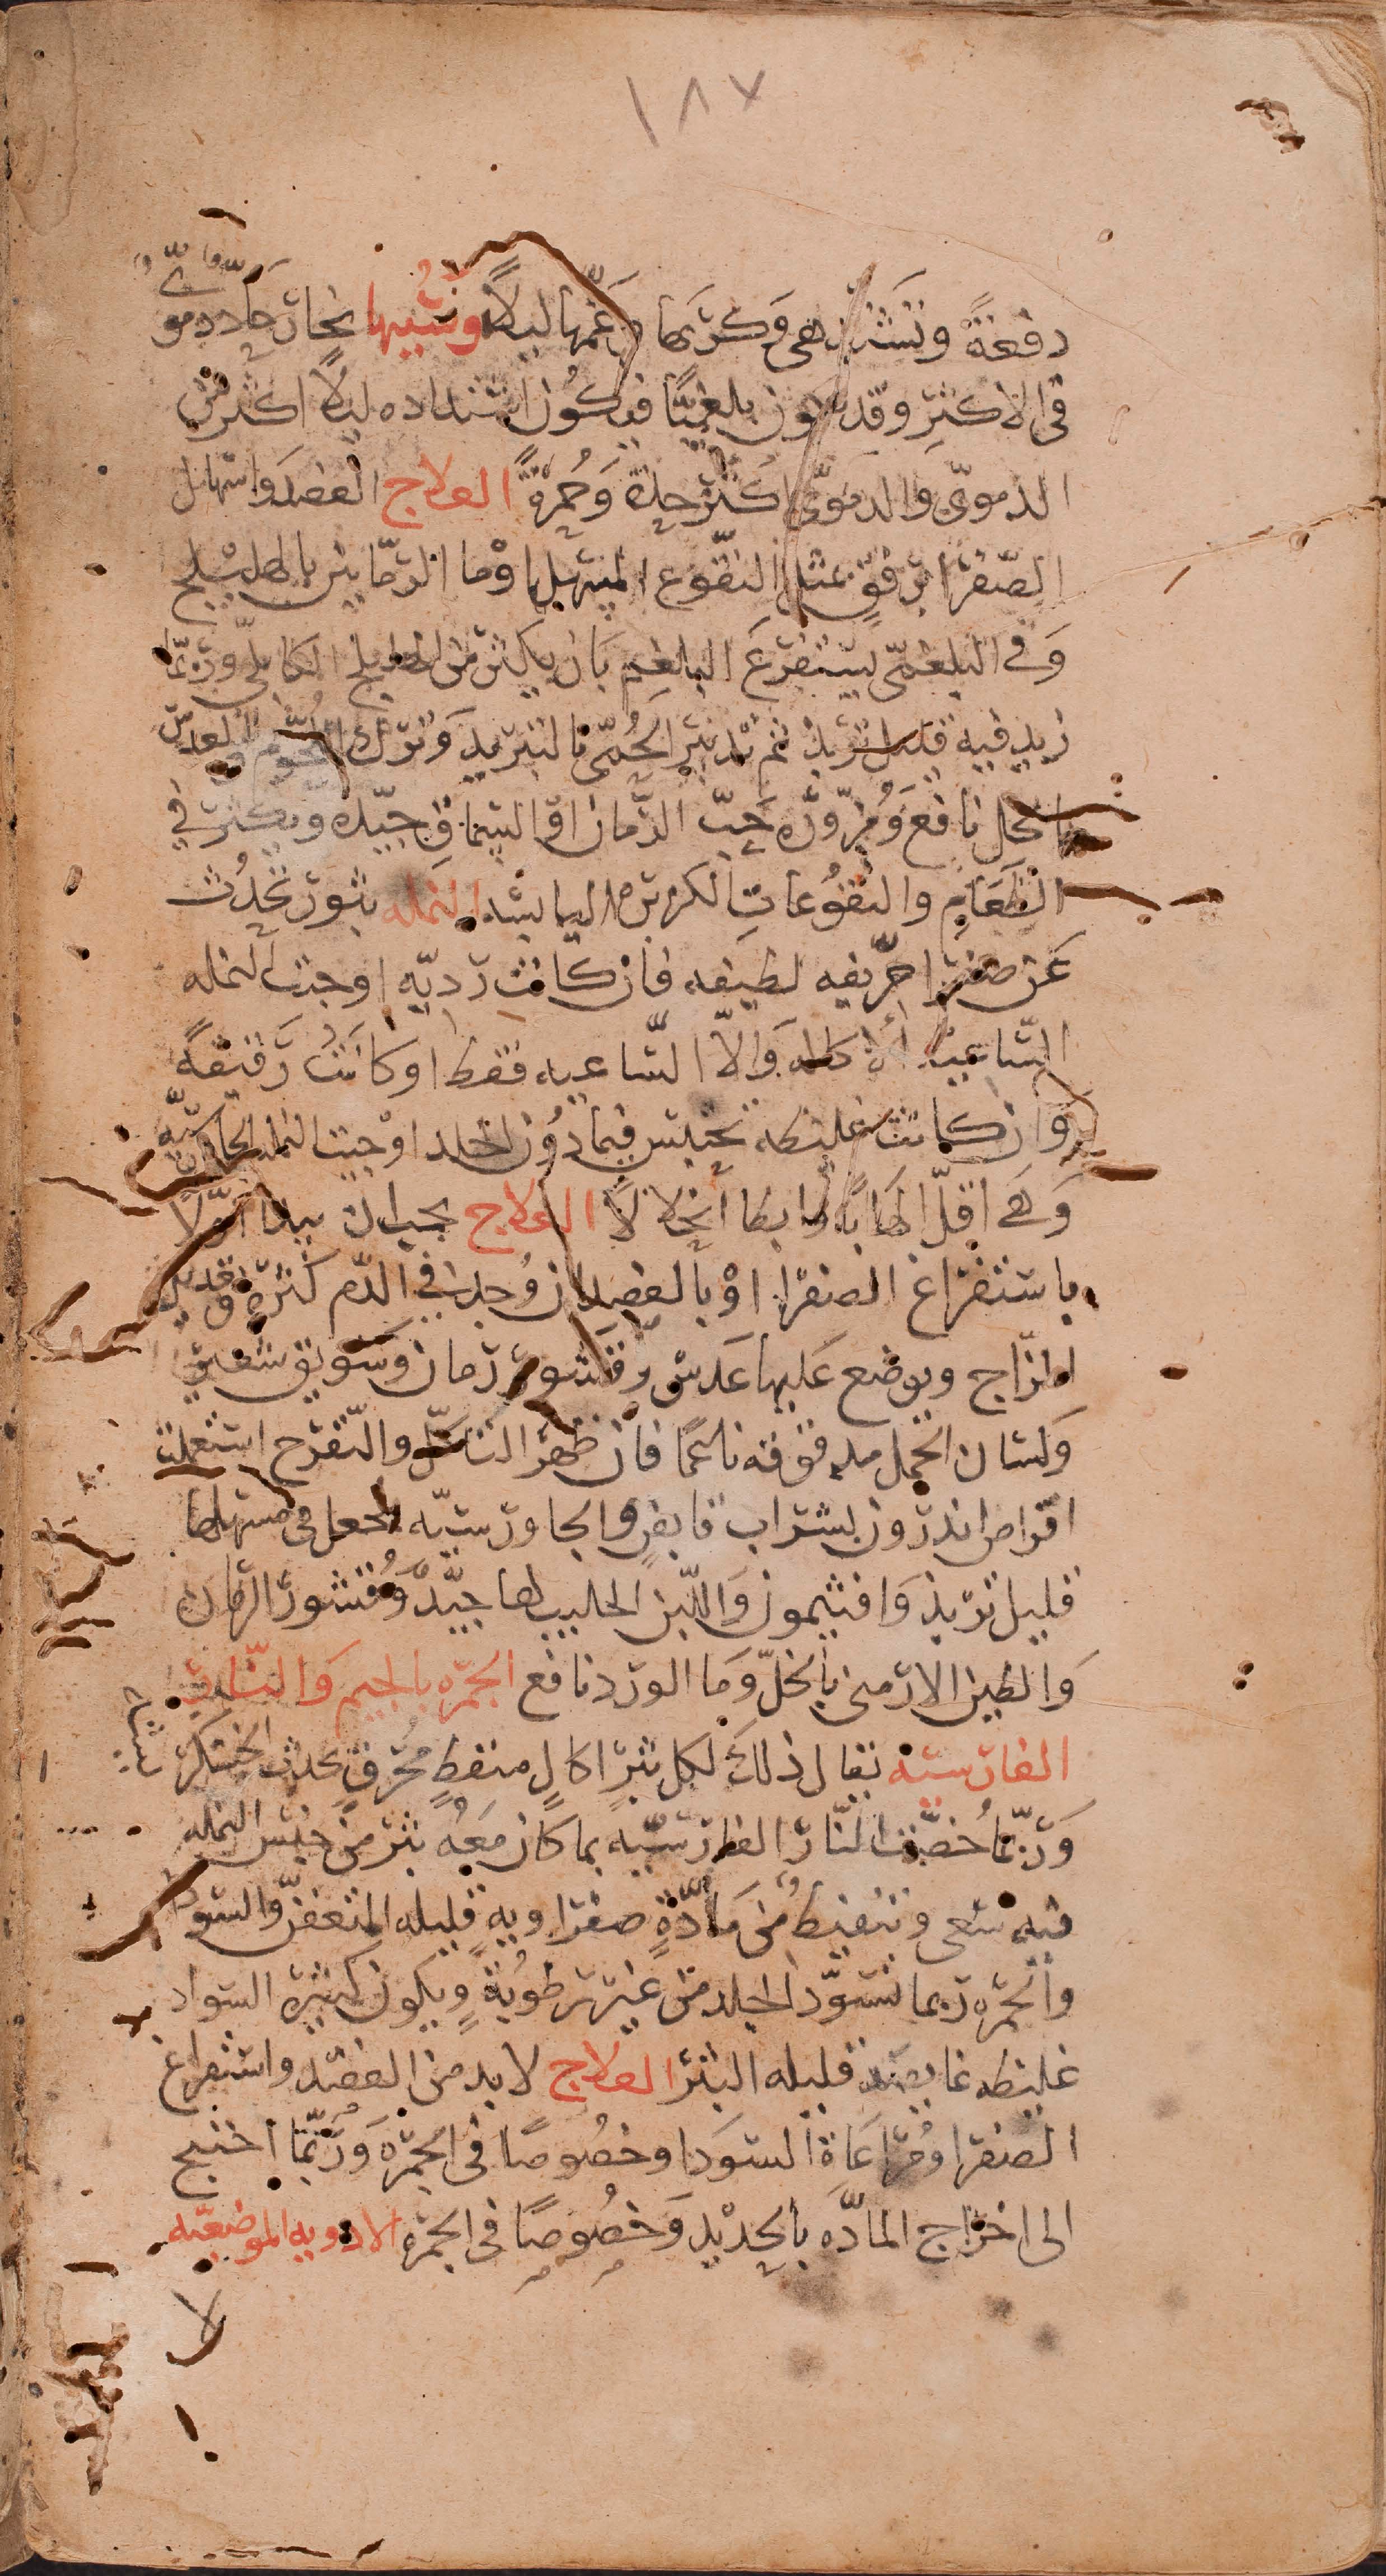 ١٨٧
دفعةً وتشتد هى وكربها وغمها ليلاً وسببها بخار حاد دموىّ
فى الاكثر وقد يكون بلغميًّا فيكون اشتداده ليلاً اكثر من
الدموىّ والدموىّ اكثر حدة وحمرةً العلاج الفصد واسهال
الصّفرا برفقٍ بمثل النقّوع المسهل اوما الرمّانين بالهليلج
وفى البلغمّى يستفرغ البلغم بان يكثر من الهليلج الكابلىّ وربّما
زيد فيه قليل تربذ ثم تدبير الحُمّى بالتبريد وترك اللحُوم والعدس
بالخل نافع ومُزوّره حَبّ الرّمان اوْ السّماق جيّده ويكثر فى
الطَعَام والنقوُعات الكزبره اليابسه النمله بثور تحْدُث
عَن صفرا حرّيفه لطيفه فان كانت رديّه اوجبت النمله
السّاعيه الاكاله وَالاّ السّاعيه فقط اوكانَتْ رَقيقهً
وان كانت غليظه تحتبس فيما دُون الجلد اوجبت النمله الجاورسيّه
وَهَى اقلّ الهَابًا وابطا انحلالاً العلاج يجب ان يبدا اوّلاً
باستفراغ الصفرا اوْ بالفصد ان وُجد فى الدّم كثرةٌ وتعديل
المزاج ويوضع عَليها عَدسٌ وقشور رمان وسَويق شعير
وَلسَان الحمل مدقوقه ناعمًا فان ظهَر التاكّل والتقرح استعملت
اقراص اندرون بشراب قابضٍ والجاورسيّه يجعل فى مسهلها
قليل تربذ وَافتيمون وَاللّبن الحليب لها جيّدٌ وقُشور الرمان
وَالطين الارمنى بالخلّ وَما الورد نافع الجمره بالجيم وَالنّار
الفارسيّه يقال ذلكَ لكل بثرٍ اكالٍ منفطٍ مُحرقٍ محدث الخشكر
يشه
وَربّما خُصّت النّار الفارسيّه بما كان مَعَهُ بثر من جنس النمله
فيه سعى وتنفيط من مَادّةٍ صفراويهٍ قليله التعفنّ والسّودا
والجمره ربما تسّود الجلد من غير رطوُبةٍ ويكون كثيره السواد
غليظه غايصَه قليله البثر العلاج لابد من الفصد واستفراغ
الصفرا ومُراعَاة السوَدا وخصُوصًا فى الجمره وَربّما احتيج
الى اخراج المادّه بالحديد وَخصُوصًا فى الجمره الادويه الموضعيّه
لا